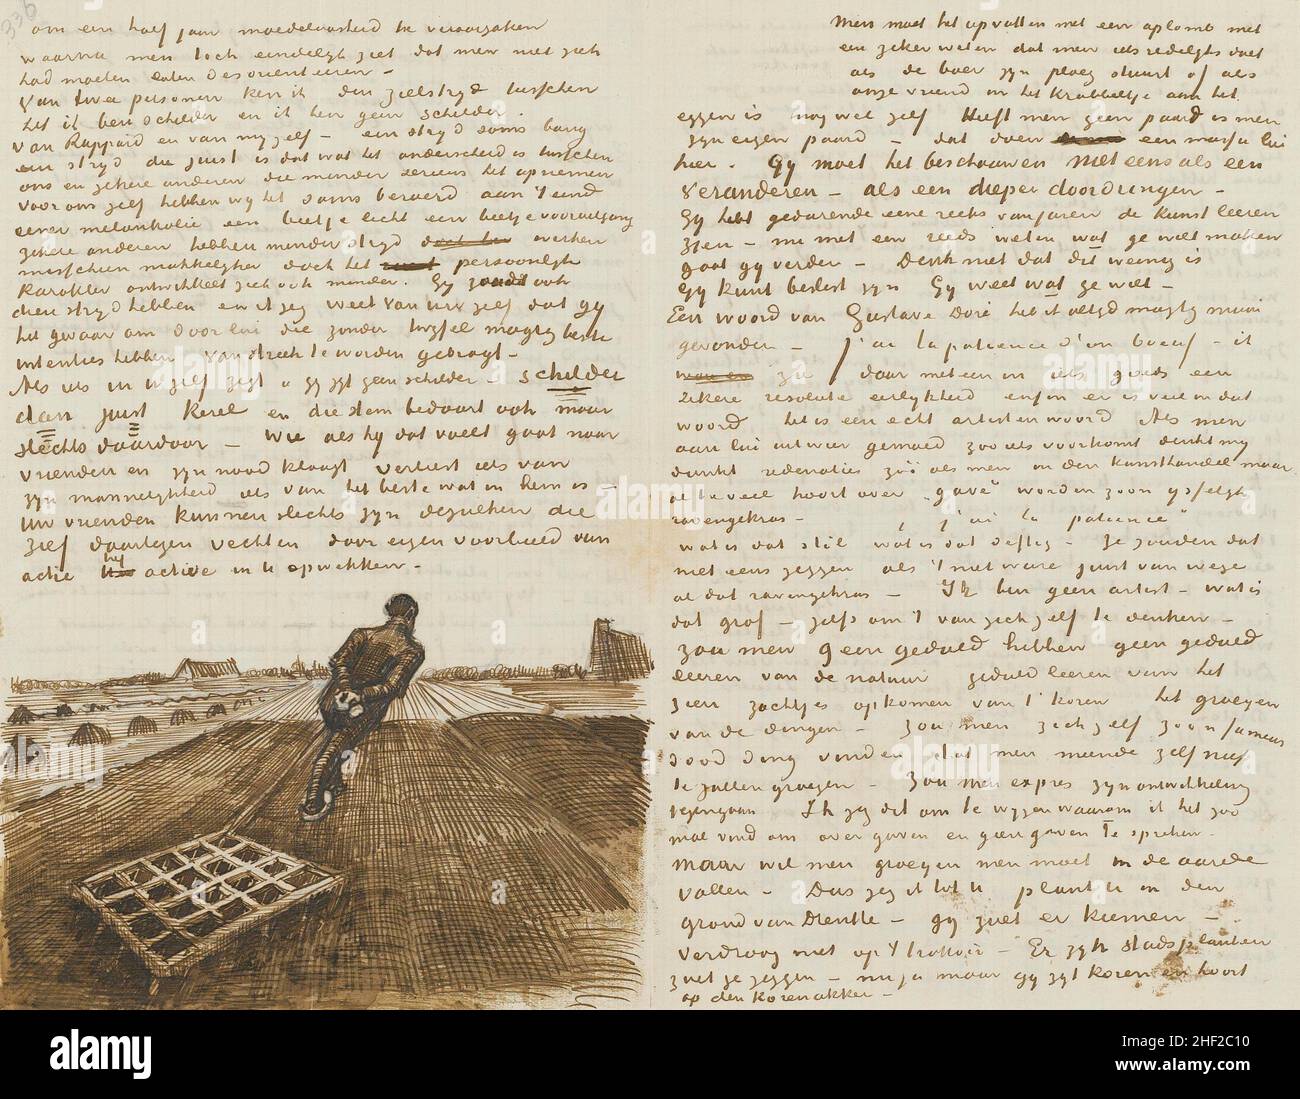 336
om een half jaar moedeloosheid te veroorzaken
waarna men toch eindelyk ziet dat men niet zich
had moeten laten desorienteeren –
Van twee personen ken ik den zielstryd tusschen
het ik ben schilder en ik ben geen schilder.
Van Rappard en van my zelf – een stryd soms bang
een stryd die juist is dat wat het onderscheid is tusschen
ons en zekere anderen die minder serieus het opnemen
voor ons zelf hebben wy het soms beroerd aan 't eind
eener melankolie een beetje licht een beetje vooruitgang
zekere anderen hebben minder stryd werken
misschien makkelyker doch het persoonlyk
karakter ontwikkelt zich ook minder. Gy zoudt ook
dien stryd hebben en ik zeg weet van uw zelf dat gy
het gevaar om door lui die zonder twyfel magtig beste
intenties hebben van streek te worden gebragt –
Als iets in U zelf zegt "gy zyt geen schilder – schilder
dan juist kerel en die stem bedaart ook maar
slechts daardoor – Wie als hy dat voelt gaat naar
vrienden en zyn nood klaagt verliest iets van
zyn mannelykheid iets van het beste wat in hem is –
Uw vrienden kunnen slechts zyn dezulken die
zelf daartegen vechten door eigen voorbeeld van
actie het active in U opwekken –
Men moet het opvatten met een aplomb met
een zeker weten dat men iets redelyks doet
als de boer zyn ploeg stuurt of als
onze vriend in het krabbeltje aan het
eggen is nog wel zelf Heeft men geen paard is men
zyn eigen paard – dat doen een massa lui
hier. Gy moet het beschouwen niet eens als een
veranderen – als een dieper doordringen –
Gy hebt gedurende eene reeks van jaren de kunst leeren
zien – nu met een reeds weten wat ge wilt maken
gaat gy verder – Denk niet dat dit weinig is
Gy kunt beslist zyn Gy weet wat ge wilt –
Een woord van Gustave Doré heb ik altyd magtig mooi
gevonden – j'ai la patience d'un boeuf – ik
zie daar meteen in iets goeds een
zekere resolute eerlykheid enfin er is veel in dat
woord het is een echt artisten woord Als men
aan lui uit wier gemoed zoo iets voortkomt denkt my
dunkt redenaties zóó als men in den kunsthandel maar
al te veel hoort over "gave" worden zoon ysselyk
ravengekras – "j'ai la patience"
wat is dat stil wat is dat deftig – Ze zouden dat
niet eens zeggen als 't niet ware juist van wege
al dat ravengekras – Ik ben geen artist – wat is
dat grof – zelfs om 't van zich zelf te denken –
zou men geen geduld hebben geen geduld
leeren van de natuur geduld leeren van het
zien zachtjes opkomen van 't koren het groeyen
van de dingen – zou men zich zelf zoon fameus
dood ding vinden dat men meende zelf niet
te zullen groeyen – zou men expres zyn ontwikkeling
tegengaan Ik zeg dit om te wyzen waarom ik het zoo
mal vind om over gaven en geen gaven te spreken –
Maar wil men groeyen men moet in de aarde
vallen – Dus zeg ik tot U plant U in den
grond van Drenthe – gy zult er kiemen –
verdroog niet op 't trottoir – Er zyn stadsplanten
zult ge zeggen – nu ja maar gy zyt koren en hoort
op den korenakker –
alamy
Image ID: 2HF2C10
www.alamy.com